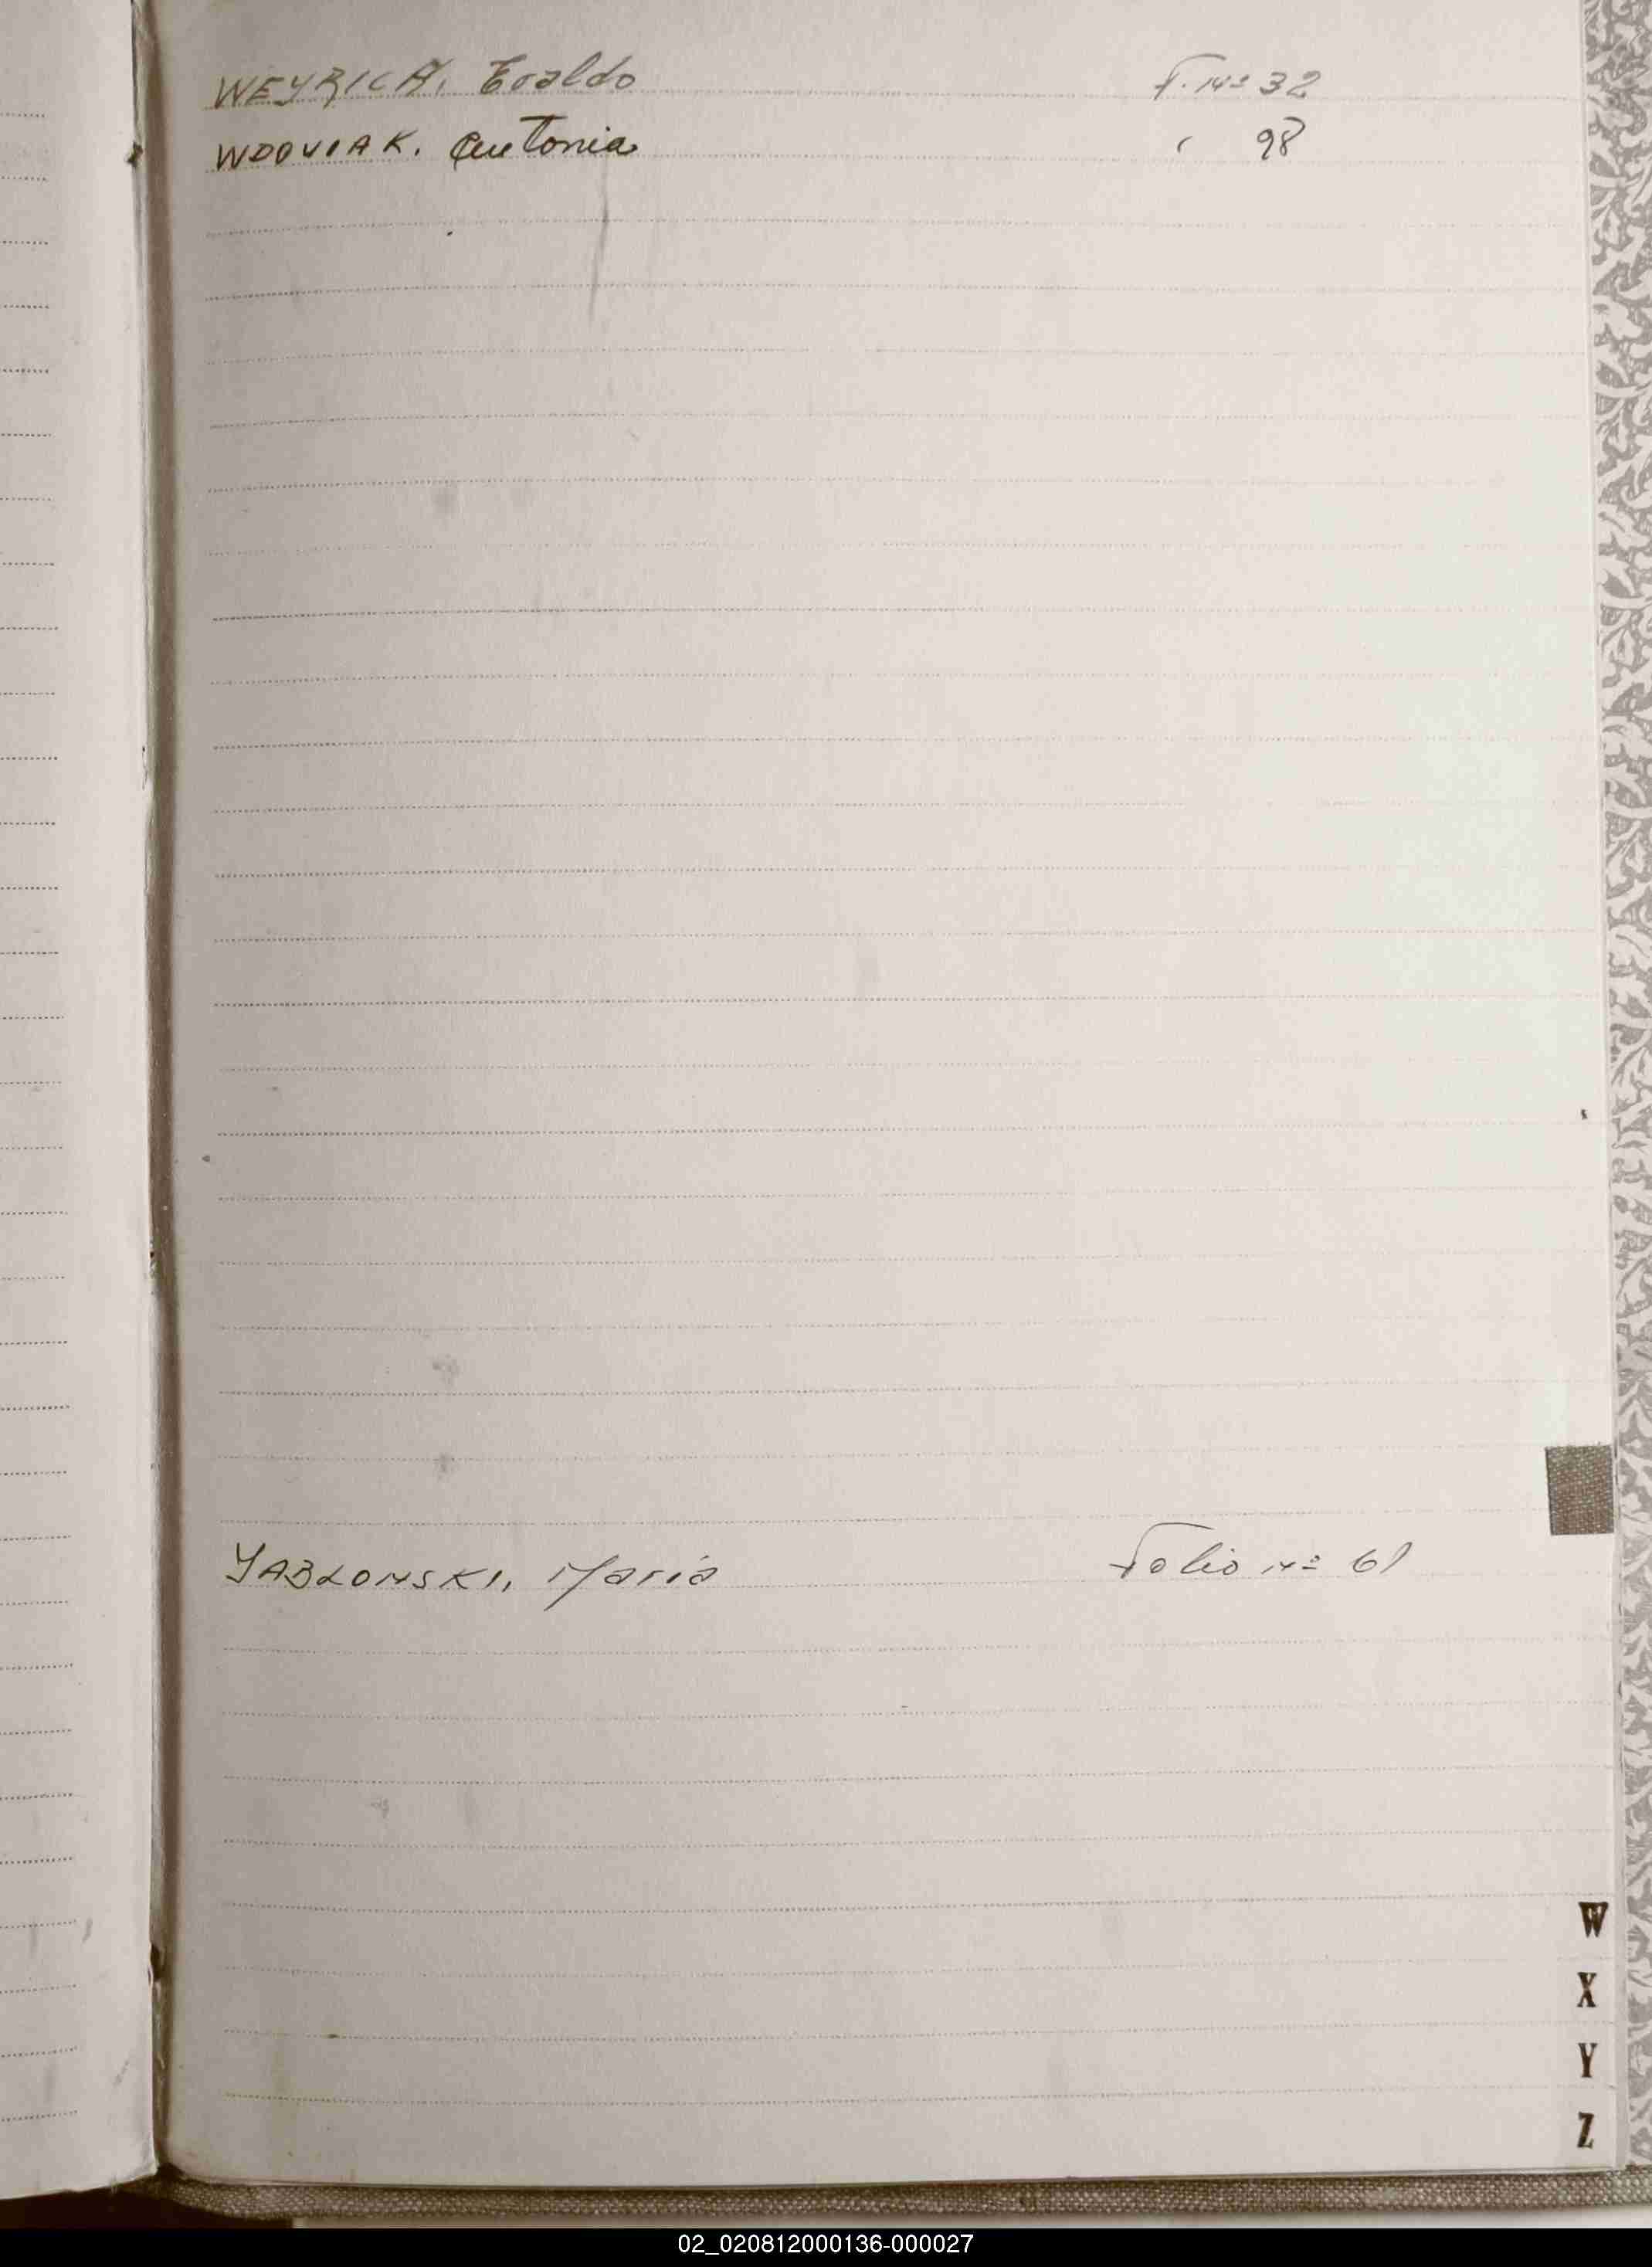 WEYRICH, Evaldo F. Nº 32
WDOVIAK. Antonia " 98
YABLONSKI, Maria Folio Nº 61
W
X
Y
Z
02_020812000136-000027